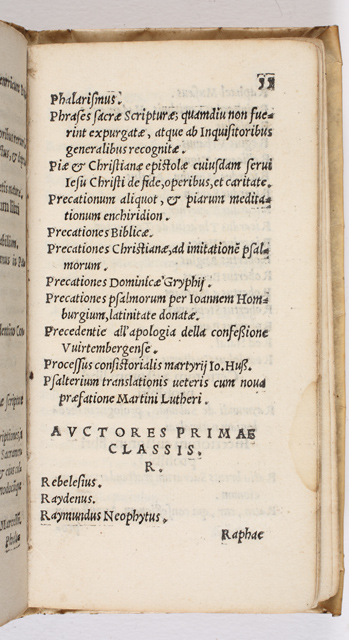 33
Phalarismus.
Phrases sacræ Scripturæ, quamdiu non fue-
rint expurgatæ, atque ab Inquisitoribus
generalibus recognitæ.
Piæ & Christianæ epistolæ cuiusdam serui
Iesu Christi de fide, operibus, et caritate.
Precationum aliquot, & piarum medita-
tionum enchiridion.
Precationes Biblicæ.
Precationes Christianæ, ad imitationē psal-
morum.
Precationes Dominicæ Gryphij.
Precationes psalmorum per Ioannem Hom-
burgium, latinitate donatæ.
Precedentie all'apologia della confessione
Vuirtembergense.
Processus consistorialis martyrij Io. Huss.
Psalterium translationis ueteris cum noua
præfatione Martini Lutheri.
AVCTORES PRIMAE
CLASSIS.
R.
Rebelesius.
Raydenus.
Raymundus Neophytus.
Raphae